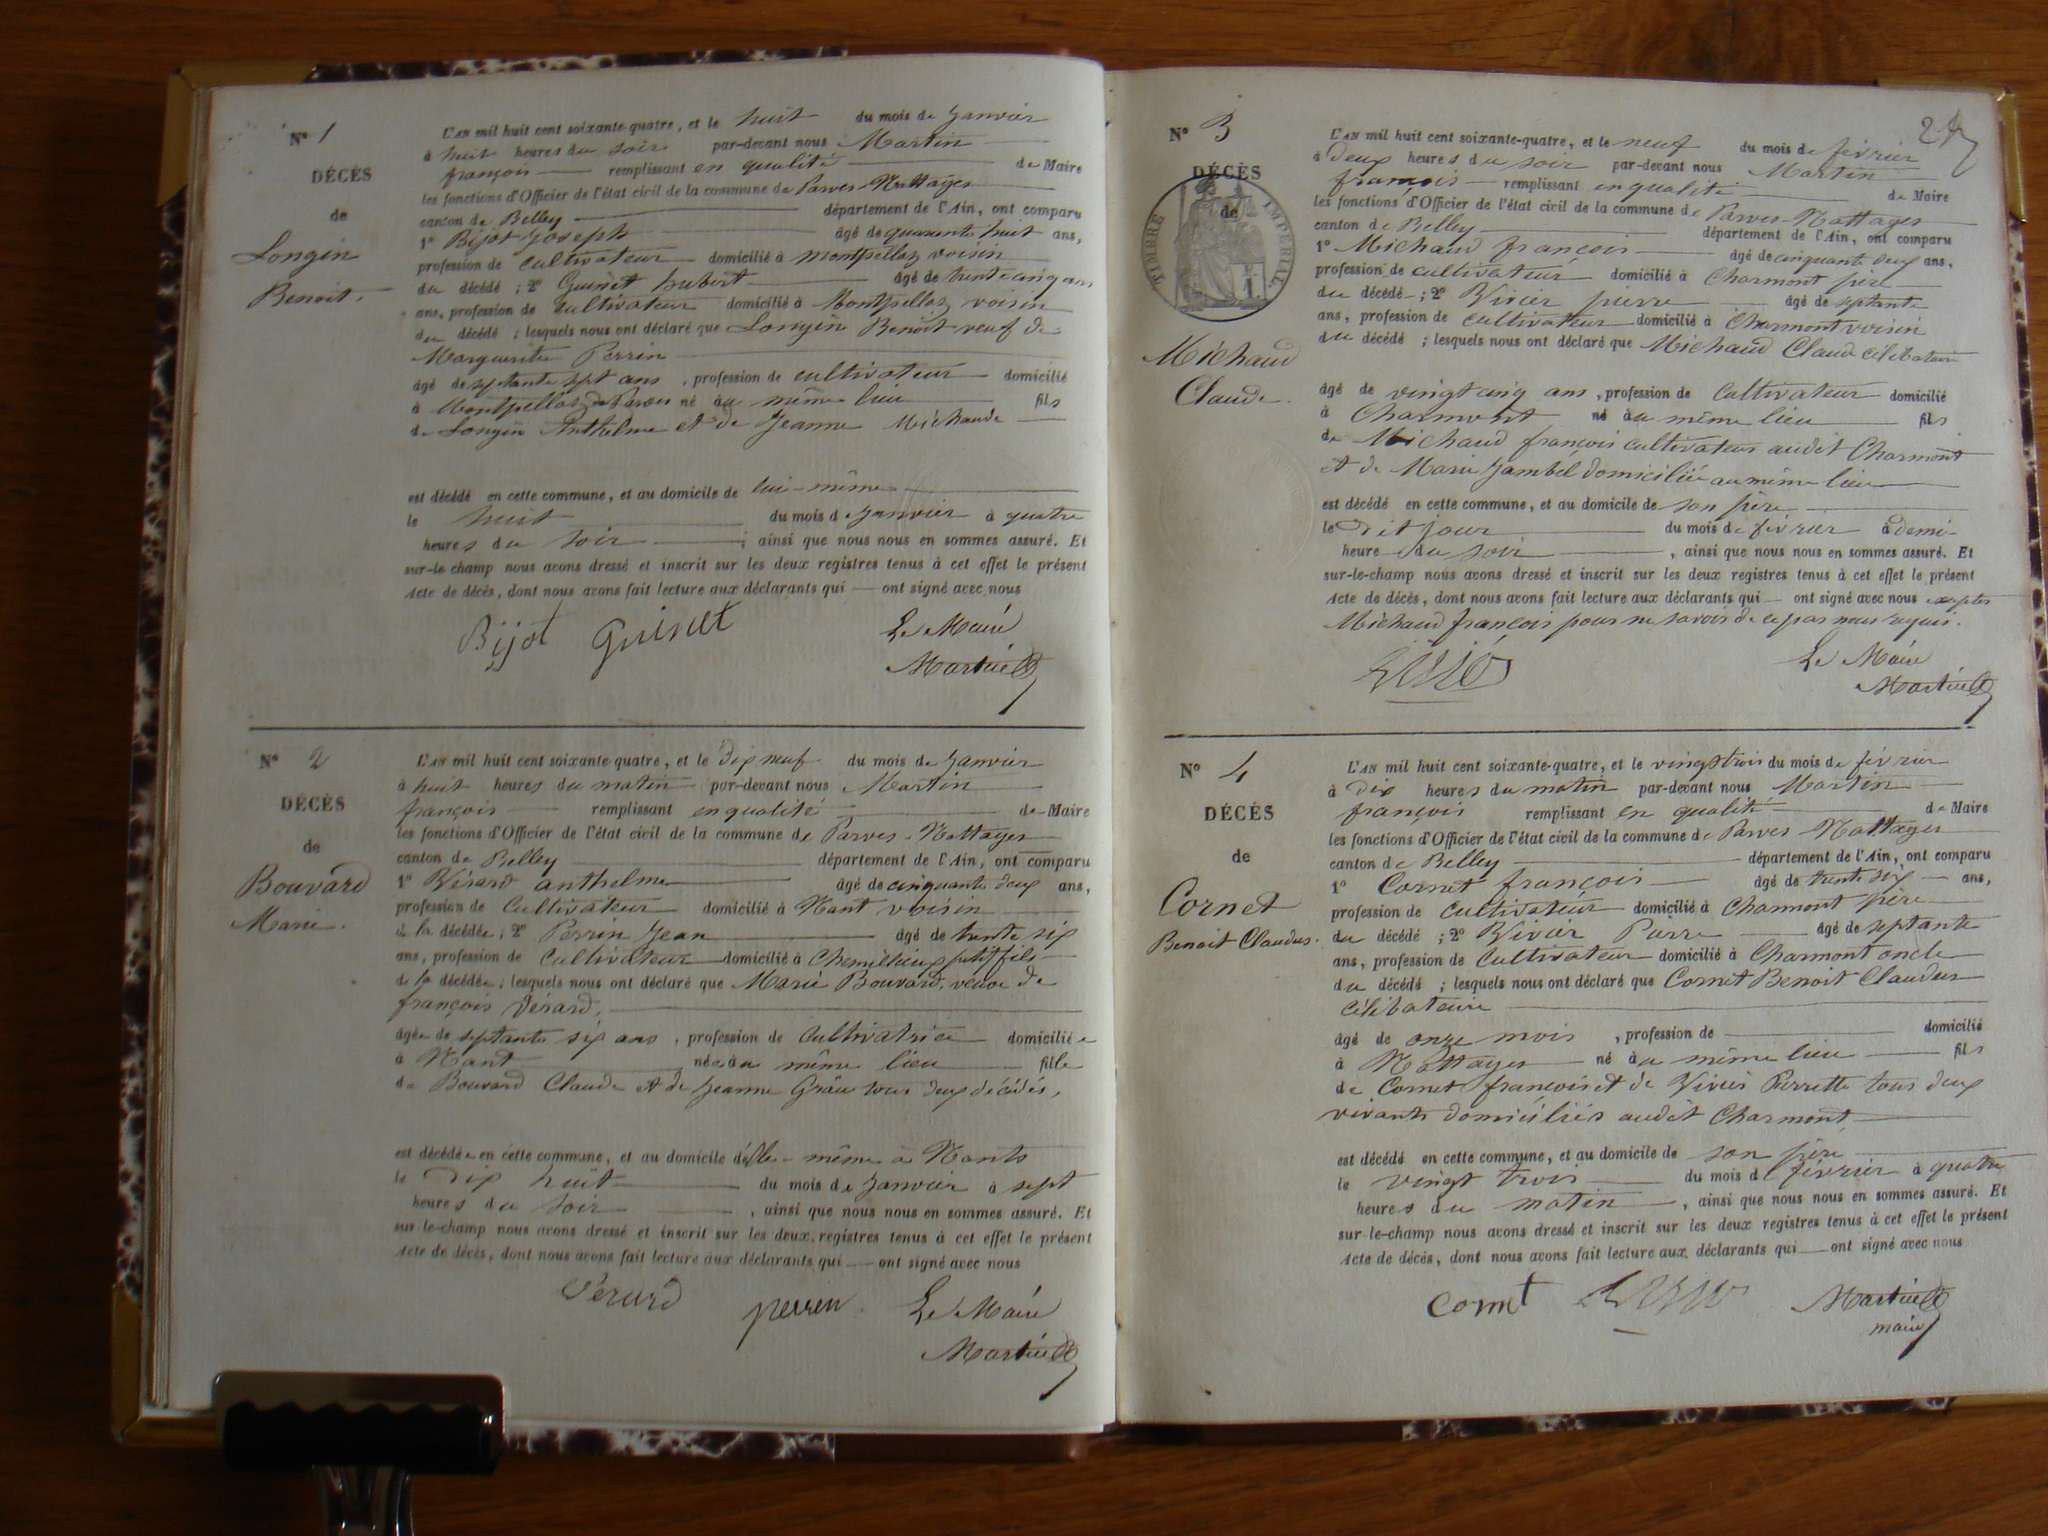 N° 1
DÉCÈS
de
Longin
Benoit.
L'AN mil huit cent soixante-quatre, et le huit du mois de Janvier
à huit heures du soir par-devant nous Martin
françois remplissant en qualité de Maire
les fonctions d'Officier de l'état civil de la commune de Parves-Nattages
canton de Belley département de l'Ain, ont comparu
1° Bijot Joseph âgé de quarante huit ans,
profession de cultivateur domicilié à Montpellaz voisin
du décédé ; 2° Guinet hubert âgé de trente cinq ans
ans, profession de cultivateur domicilié à Montpellaz voisin
du décédé ; lesquels nous ont déclaré que Longin Benoit veuf de
Marguerite Perrin
âgé de septante sept ans, profession de cultivateur domicilié
à Montpellaz de Parves né au même lieu fils
de Longin Anthelme et de Jeanne Michaude
est décédé en cette commune, et au domicile de lui-même
le huit du mois de Janvier à quatre
heures du soir ; ainsi que nous nous en sommes assuré. Et
sur-le-champ nous avons dressé et inscrit sur les deux registres tenus à cet effet le présent
Acte de décès, dont nous avons fait lecture aux déclarants qui ont signé avec nous
Bijot Guinet Le Maire
Martin
N° 2
DÉCÈS
de
Bouvard
Marie.
L'AN mil huit cent soixante-quatre, et le Dix neuf du mois de Janvier
à huit heures du matin par-devant nous Martin
françois remplissant en qualité de Maire
les fonctions d'Officier de l'état civil de la commune de Parves-Nattages
canton de Belley département de l'Ain, ont comparu
1° Vérard anthelme âgé de cinquante deux ans,
profession de Cultivateur domicilié à Nant voisin
de la décédée ; 2° Perrin Jean âgé de trente six
ans, profession de Cultivateur domicilié à petit fils
de la décédée ; lesquels nous ont déclaré que Marie Bouvard, veuve de
françois Vérard,
âgée de septante six ans, profession de cultivatrice domiciliée
à Nant née au même lieu fille
de Bouvard Claude et de Jeanne tous deux décédés,
est décédée en cette commune, et au domicile d'elle-même à Nants
le Dix huit du mois de Janvier à sept
heures du soir, ainsi que nous nous en sommes assuré. Et
sur-le-champ nous avons dressé et inscrit sur les deux registres tenus à cet effet le présent
Acte de décès, dont nous avons fait lecture aux déclarants qui ont signé avec nous
Vérard perrin. Le Maire
Martin
N° 3
DÉCÈS
de
TIMBRE IMPÉRIAL
Michaud
Claude.
L'AN mil huit cent soixante-quatre, et le neuf du mois de février
à Deux heures du soir par-devant nous Martin
françois remplissant en qualité de Maire
les fonctions d'Officier de l'état civil de la commune de Parves-Nattages
canton de Belley département de l'Ain, ont comparu
1° Michaud françois âgé de cinquante deux ans,
profession de cultivateur domicilié à Charmont père
du décédé ; 2° Vivier pierre âgé de septante
ans, profession de cultivateur domicilié à Charmont voisin
du décédé ; lesquels nous ont déclaré que Michaud Claude célibataire
âgé de vingt cinq ans, profession de Cultivateur domicilié
à Charmont né au même lieu fils
de Michaud françois cultivateur audit Charmont
et de Marie Jambel domiciliée au même lieu
est décédé en cette commune, et au domicile de son père
le dit jour du mois de février à demi-
heure du soir, ainsi que nous nous en sommes assuré. Et
sur-le-champ nous avons dressé et inscrit sur les deux registres tenus à cet effet le présent
Acte de décès, dont nous avons fait lecture aux déclarants qui ont signé avec nous excepté
Michaud françois pour ne savoir de ce par nous requis.
Le Maire
Martin
N° 4
DÉCÈS
de
Cornet
Benoit Claudus.
L'AN mil huit cent soixante-quatre, et le vingt trois du mois de février
à Dix heures du matin par-devant nous Martin
françois remplissant en qualité de Maire
les fonctions d'Officier de l'état civil de la commune de Parves-Nattages
canton de Belley département de l'Ain, ont comparu
1° Cornet françois âgé de trente six ans,
profession de cultivateur domicilié à Charmont père
du décédé ; 2° Vivier Pierre âgé de septante
ans, profession de Cultivateur domicilié à Charmont oncle
du décédé ; lesquels nous ont déclaré que Cornet Benoit Claudus
célibataire
âgé de onze mois, profession de domicilié
à Nattages né au même lieu fils
de Cornet françois et de Vivier Perrette tous deux
vivants domiciliés audit Charmont
est décédé en cette commune, et au domicile de son père
le vingt trois du mois de février à quatre
heures du matin, ainsi que nous nous en sommes assuré. Et
sur-le-champ nous avons dressé et inscrit sur les deux registres tenus à cet effet le présent
Acte de décès, dont nous avons fait lecture aux déclarants qui ont signé avec nous
Cornet Martin
maire